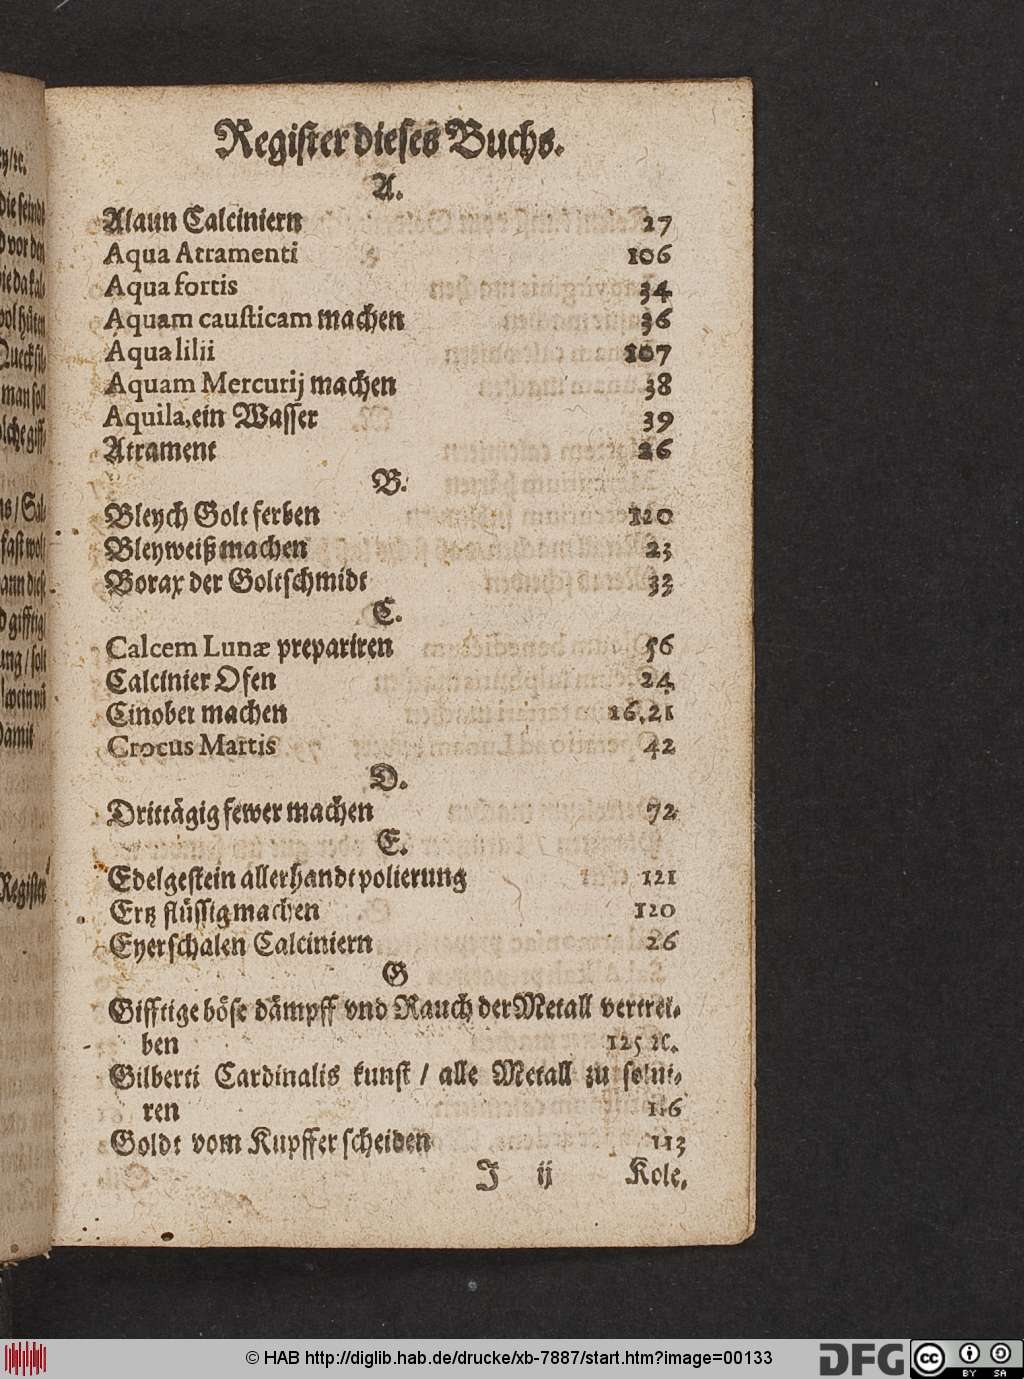 Register dieses Buchs.
A.
Alaun Calciniern 27
Aqua Atramenti 106
Aqua fortis 34
Aquam causticam machen 36
Aqua lilii 107
Aquam Mercurij machen 38
Aquila, ein Wasser 39
Atrament 26
B.
Bleych Golt ferben 120
Bleyweiß machen 23
Borax der Goltschmidt 33
C.
Calcem Lunæ prepariren 56
Calcinier Ofen 24
Cinober machen 16.21
Crocus Martis 42
D.
Drittägig fewer machen 72
E.
Edelgestein allerhandt polierung 121
Ertz flüssig machen 120
Eyerschalen Calciniern 26
G
Gifftige böse dämpff vnd Rauch der Metall vertrei-
ben 125 ꝛc.
Gilberti Cardinalis kunst / alle Metall zu solui-
ren 116
Goldt vom Kupffer scheiden 113
J ij Kole,
y/ꝛc.
die seindt
d vor den
wie da kal-
wol hüten
Quecksil-
man soll
solche giff-
ns / Sal-
fast wol
dann diese
d gifftig
ung / solt
Damit
Register
© HAB http://diglib.hab.de/drucke/xb-7887/start.htm?image=00133
DFG
cc
BY SA